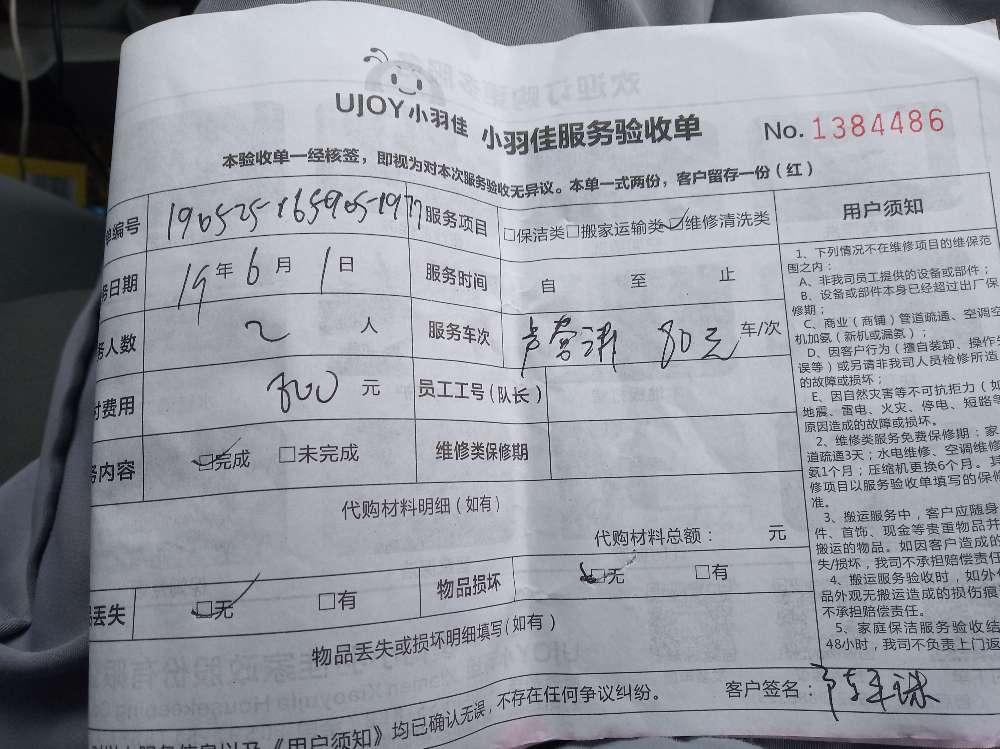 UJOY小羽佳 小羽佳服务验收单 No. 1384486
本验收单一经核签，即视为对本次服务验收无异议。本单一式两份，客户留存一份（红）
单编号 服务项目 □保洁类□搬家运输类☑维修清洗类 用户须知
务日期 19年6月1日 服务时间 自 至 止
务人数 2 人 服务车次 80元 车/次
付费用 800 元 员工工号(队长)
务内容 ☑完成 □未完成 维修类保修期
代购材料明细（如有）
代购材料总额： 元
品丢失 ☑无 □有 物品损坏 ☑无 □有
物品丢失或损坏明细填写（如有）
客户签名：
《用户须知》均已确认无误，不存在任何争议纠纷。
1、下列情况不在维修项目的维保范
围之内：
A、非我司员工提供的设备或部件；
B、设备或部件本身已经超过出厂保
修期；
C、商业（商铺）管道疏通、空调空
机加氨（新机或漏氨）；
D、因客户行为（擅自装卸、操作失
误等）或另请非我司人员检修所造
的故障或损坏；
E、因自然灾害等不可抗拒力（如
地震、雷电、火灾、停电、短路等
原因造成的故障或损坏。
2、维修类服务免费保修期：家
道疏通3天；水电维修、空调维修
氨1个月；压缩机更换6个月。其
修项目以服务验收单填写的保修
准。
3、搬运服务中，客户应随身
件、首饰、现金等贵重物品并
搬运的物品。如因客户造成的
失/损坏，我司不承担赔偿责任
4、搬运服务验收时，如外包
品外观无搬运造成的损伤痕
不承担赔偿责任。
5、家庭保洁服务验收结
48小时，我司不负责上门返